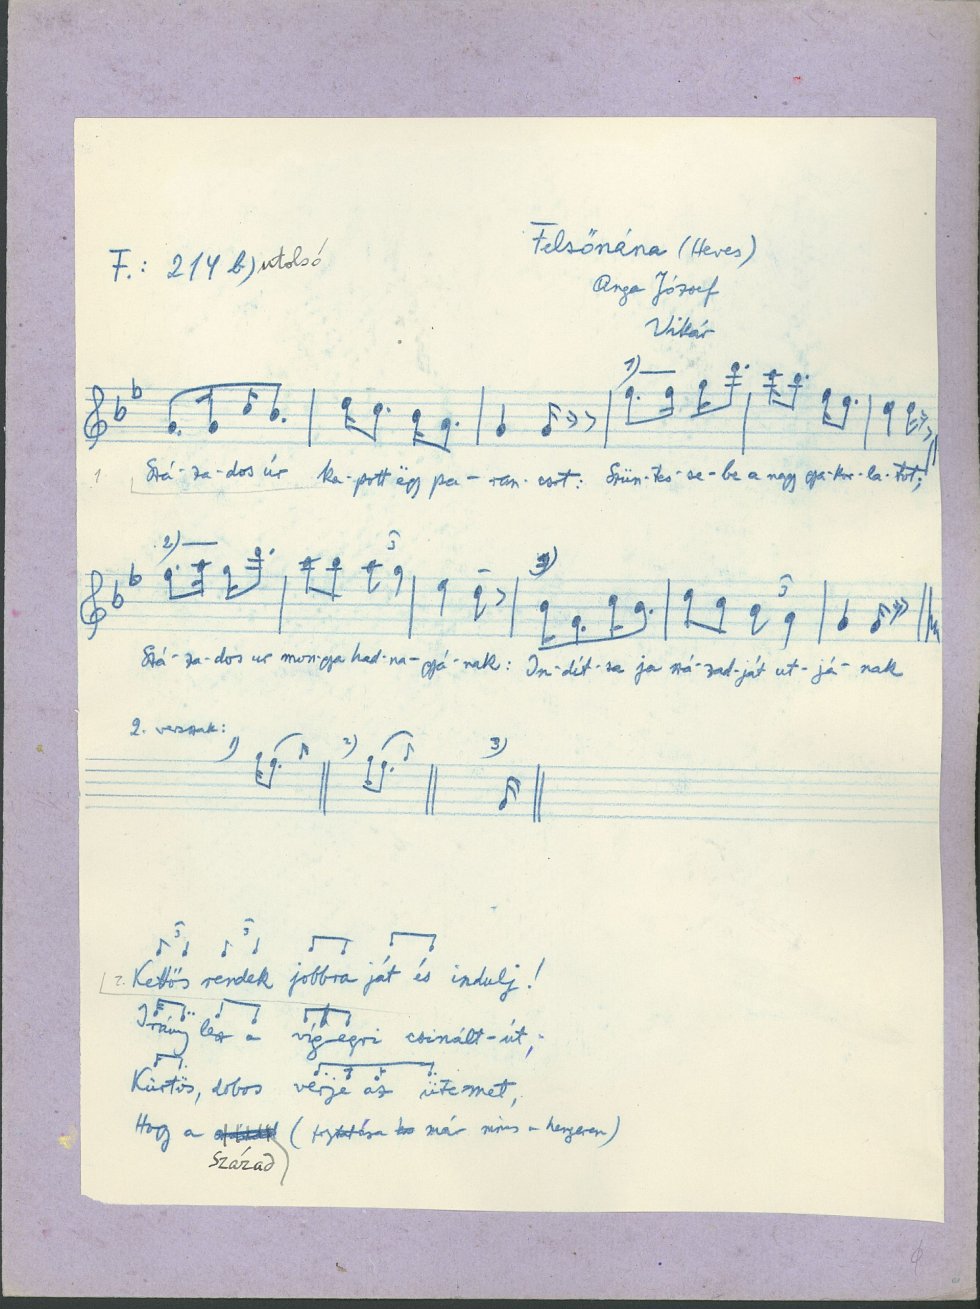 F.: 214 b) utolsó
Felsőnána (Heves)
Anga József
Vikár
1)
1. Szá-za-dos úr ka-pott ëgy pa-ran-csot: Szün-tes-se-be a nagy gja-kor-la-tot;
2) 3 3) 3
Szá-za-dos ur mon-gja had-na-gjá-nak: In-dít-sa ja szá-zad-ját ut-já-nak
2. versszak:
1) 2) 3)
3 3
2. Kettős rendek jobbra ját és indulj!
Irány lesz a víg egri csinált-út,
Kürtös, dobos verje az ütemet,
Hogy a (folytatása már nincs a hengeren)
Század